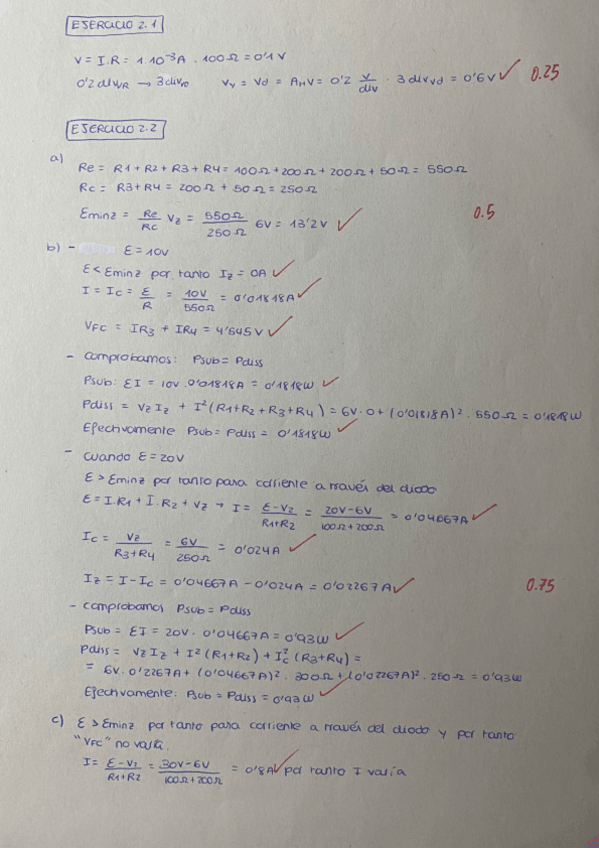 EJERCICIO 2.1
V = I.R = 1.10⁻³A . 100Ω = 0'1V
0'2 divVR → 3divVD   Vy = Vd = AHV = 0'2 V/div · 3 divVd = 0'6V 0.25
EJERCICIO 2.2
a)
Re = R1+R2+R3+R4 = 100Ω+200Ω+200Ω+50Ω = 550Ω
Rc = R3+R4 = 200Ω+50Ω = 250Ω
Eminz = Re/Rc Vz = 550Ω/250Ω 6V = 13'2V 0.5
b) - E = 10V
E < Eminz por tanto Iz = 0A
I = Ic = E/R = 10V/550Ω = 0'01818A
VFC = IR3 + IR4 = 4'545V
- comprobamos: Psub = Pdiss
Psub: EI = 10V . 0'01818A = 0'1818W
Pdiss = VzIz + I²(R1+R2+R3+R4) = 6V.0 + (0'01818A)². 550Ω = 0'1818W
Efectivamente Psub = Pdiss = 0'1818W
- cuando E = 20V
E > Eminz por tanto pasa corriente a través del diodo
E = I.R1 + I.R2 + Vz → I = E-Vz/R1+R2 = 20V-6V/100Ω+200Ω = 0'04667A
Ic = Vz/R3+R4 = 6V/250Ω = 0'024A
Iz = I-Ic = 0'04667A - 0'024A = 0'02267A 0.75
- comprobamos Psub = Pdiss
Psub = EI = 20V. 0'04667A = 0'93W
Pdiss = VzIz + I²(R1+R2) + Ic²(R3+R4) =
= 6V. 0'2267A + (0'04667A)². 300Ω + (0'02267A)². 250Ω = 0'93W
Efectivamente: Psub = Pdiss = 0'93W
c) E > Eminz por tanto pasa corriente a través del diodo y por tanto
"VFC" no varía.
I = E-Vz/R1+R2 = 30V-6V/100Ω+200Ω = 0'8A por tanto I varía